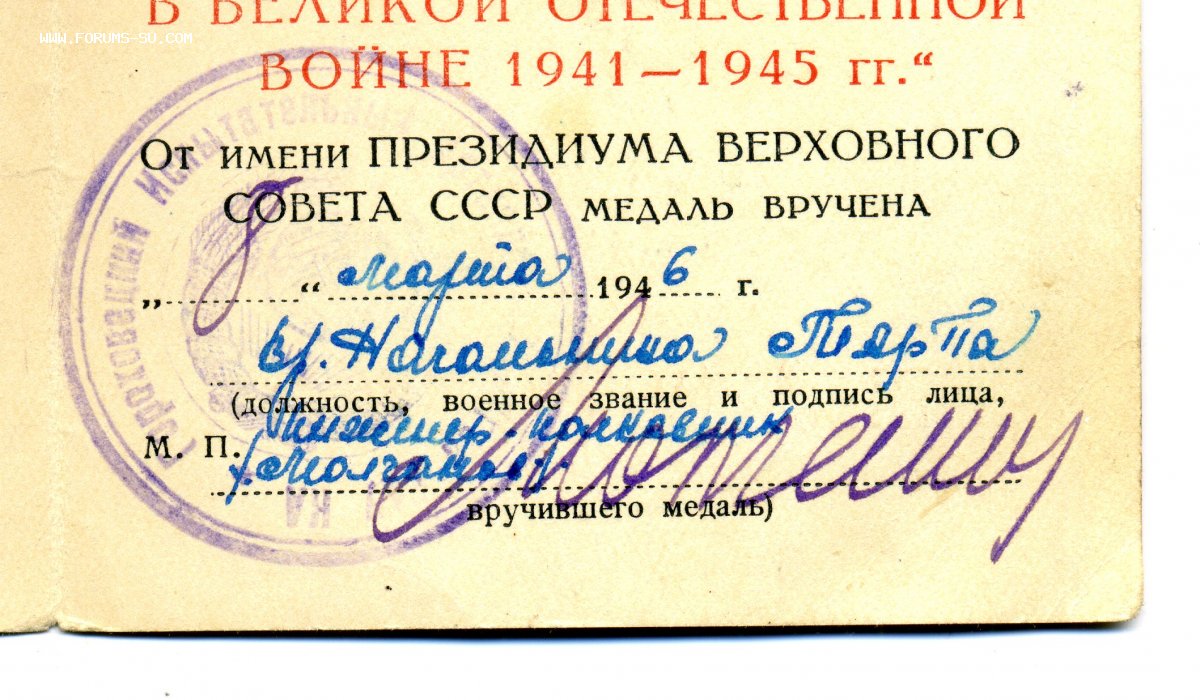 В ВЕЛИКОЙ ОТЕЧЕСТВЕННОЙ
WWW.FORUMS-SU.COM
ВОЙНЕ 1941—1945 гг.“
От имени ПРЕЗИДИУМА ВЕРХОВНОГО
СОВЕТА СССР МЕДАЛЬ ВРУЧЕНА
„8“ марта 1946 г.
Вр. Начальника ТярТа
(должность, военное звание и подпись лица,
инженер-полковник
М. П. /Молчанов/.
вручившего медаль)
Гороховецкий Испытательный